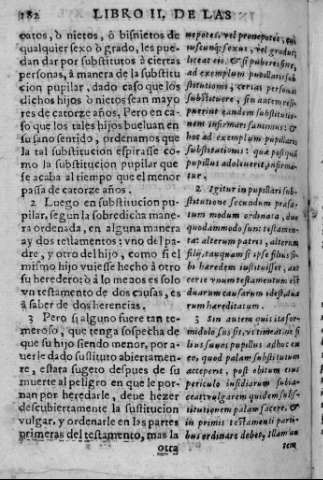 182 LIBRO II. DE LAS
eatos, ò nietos, ò bisnietos de
qualquier sexo ò grado, les pue-
dan dar por substitutos à ciertas
personas, à manera de la substitu
cion pupilar, dado caso que los
dichos hijos ò nietos sean mayo
res de catorze años. Pero en ca-
so que los tales hijos bueluan en
su sano sentido, ordenamos que
la tal substitucion espirasse co-
mo la substitucion pupilar que
se acaba al tiempo que el menor
passa de catorze años.
2 Luego en substitucion pu-
pilar, segun la sobredicha mane-
ra ordenada, en alguna manera
ay dos testamentos: vno del pa-
dre, y otro del hijo, como si el
mismo hijo vuiesse hecho à otro
su heredero: ò à lo menos es solo
vn testamento de dos cosas, es
à saber de dos herencias.
3 Pero si alguno fuere tan te-
meroso, que tenga sospecha de
que su hijo siendo menor, por a-
uerle dado sustituto abiertamen-
te, estara sugeto despues de su
muerte al peligro en que le por-
nan por heredarle, deue hezer
descubiertamente la sustitucion
vulgar, y ordenarle en las partes
primeras del testamento, mas la
otra
nepotes, vel pronepotes, cu
iuscunq; sexus, vel gradus,
liceat eis, & si puberes sint,
ad exemplum pupillaris sub
stitutionis, certas personas
substituere, sin autem resi-
puerint eandem substitutio-
nem infirmari sanimus: &
hoc ad exemplum pupillaris
substitutionis: qua postquã
pupillus adoleuerit, infirma-
tur.
2 Igitur in pupillari sub-
stitutione secundum præfa-
tum modum ordinata, duo
quodammodo sunt testamen-
ta: alterum patris, alterum
filij, tanquam si ipse filius si-
bi heredem instituisset, aut
certe vnum testamentum est
duarum causarum idest, dua
rum hæreditatum.
3 Sin autem quis ita for-
midolosus sit, vt timeat ne fi
lius suus pupillus adhuc ex
eo, quod palam substitutum
acceperit, post obitum eius
periculo insidiarum subia-
ceat, vulgarem quidem sub-
stitutionem palam facere, &
in primis testamenti parti-
bus ordinare debet, Illam au
tem